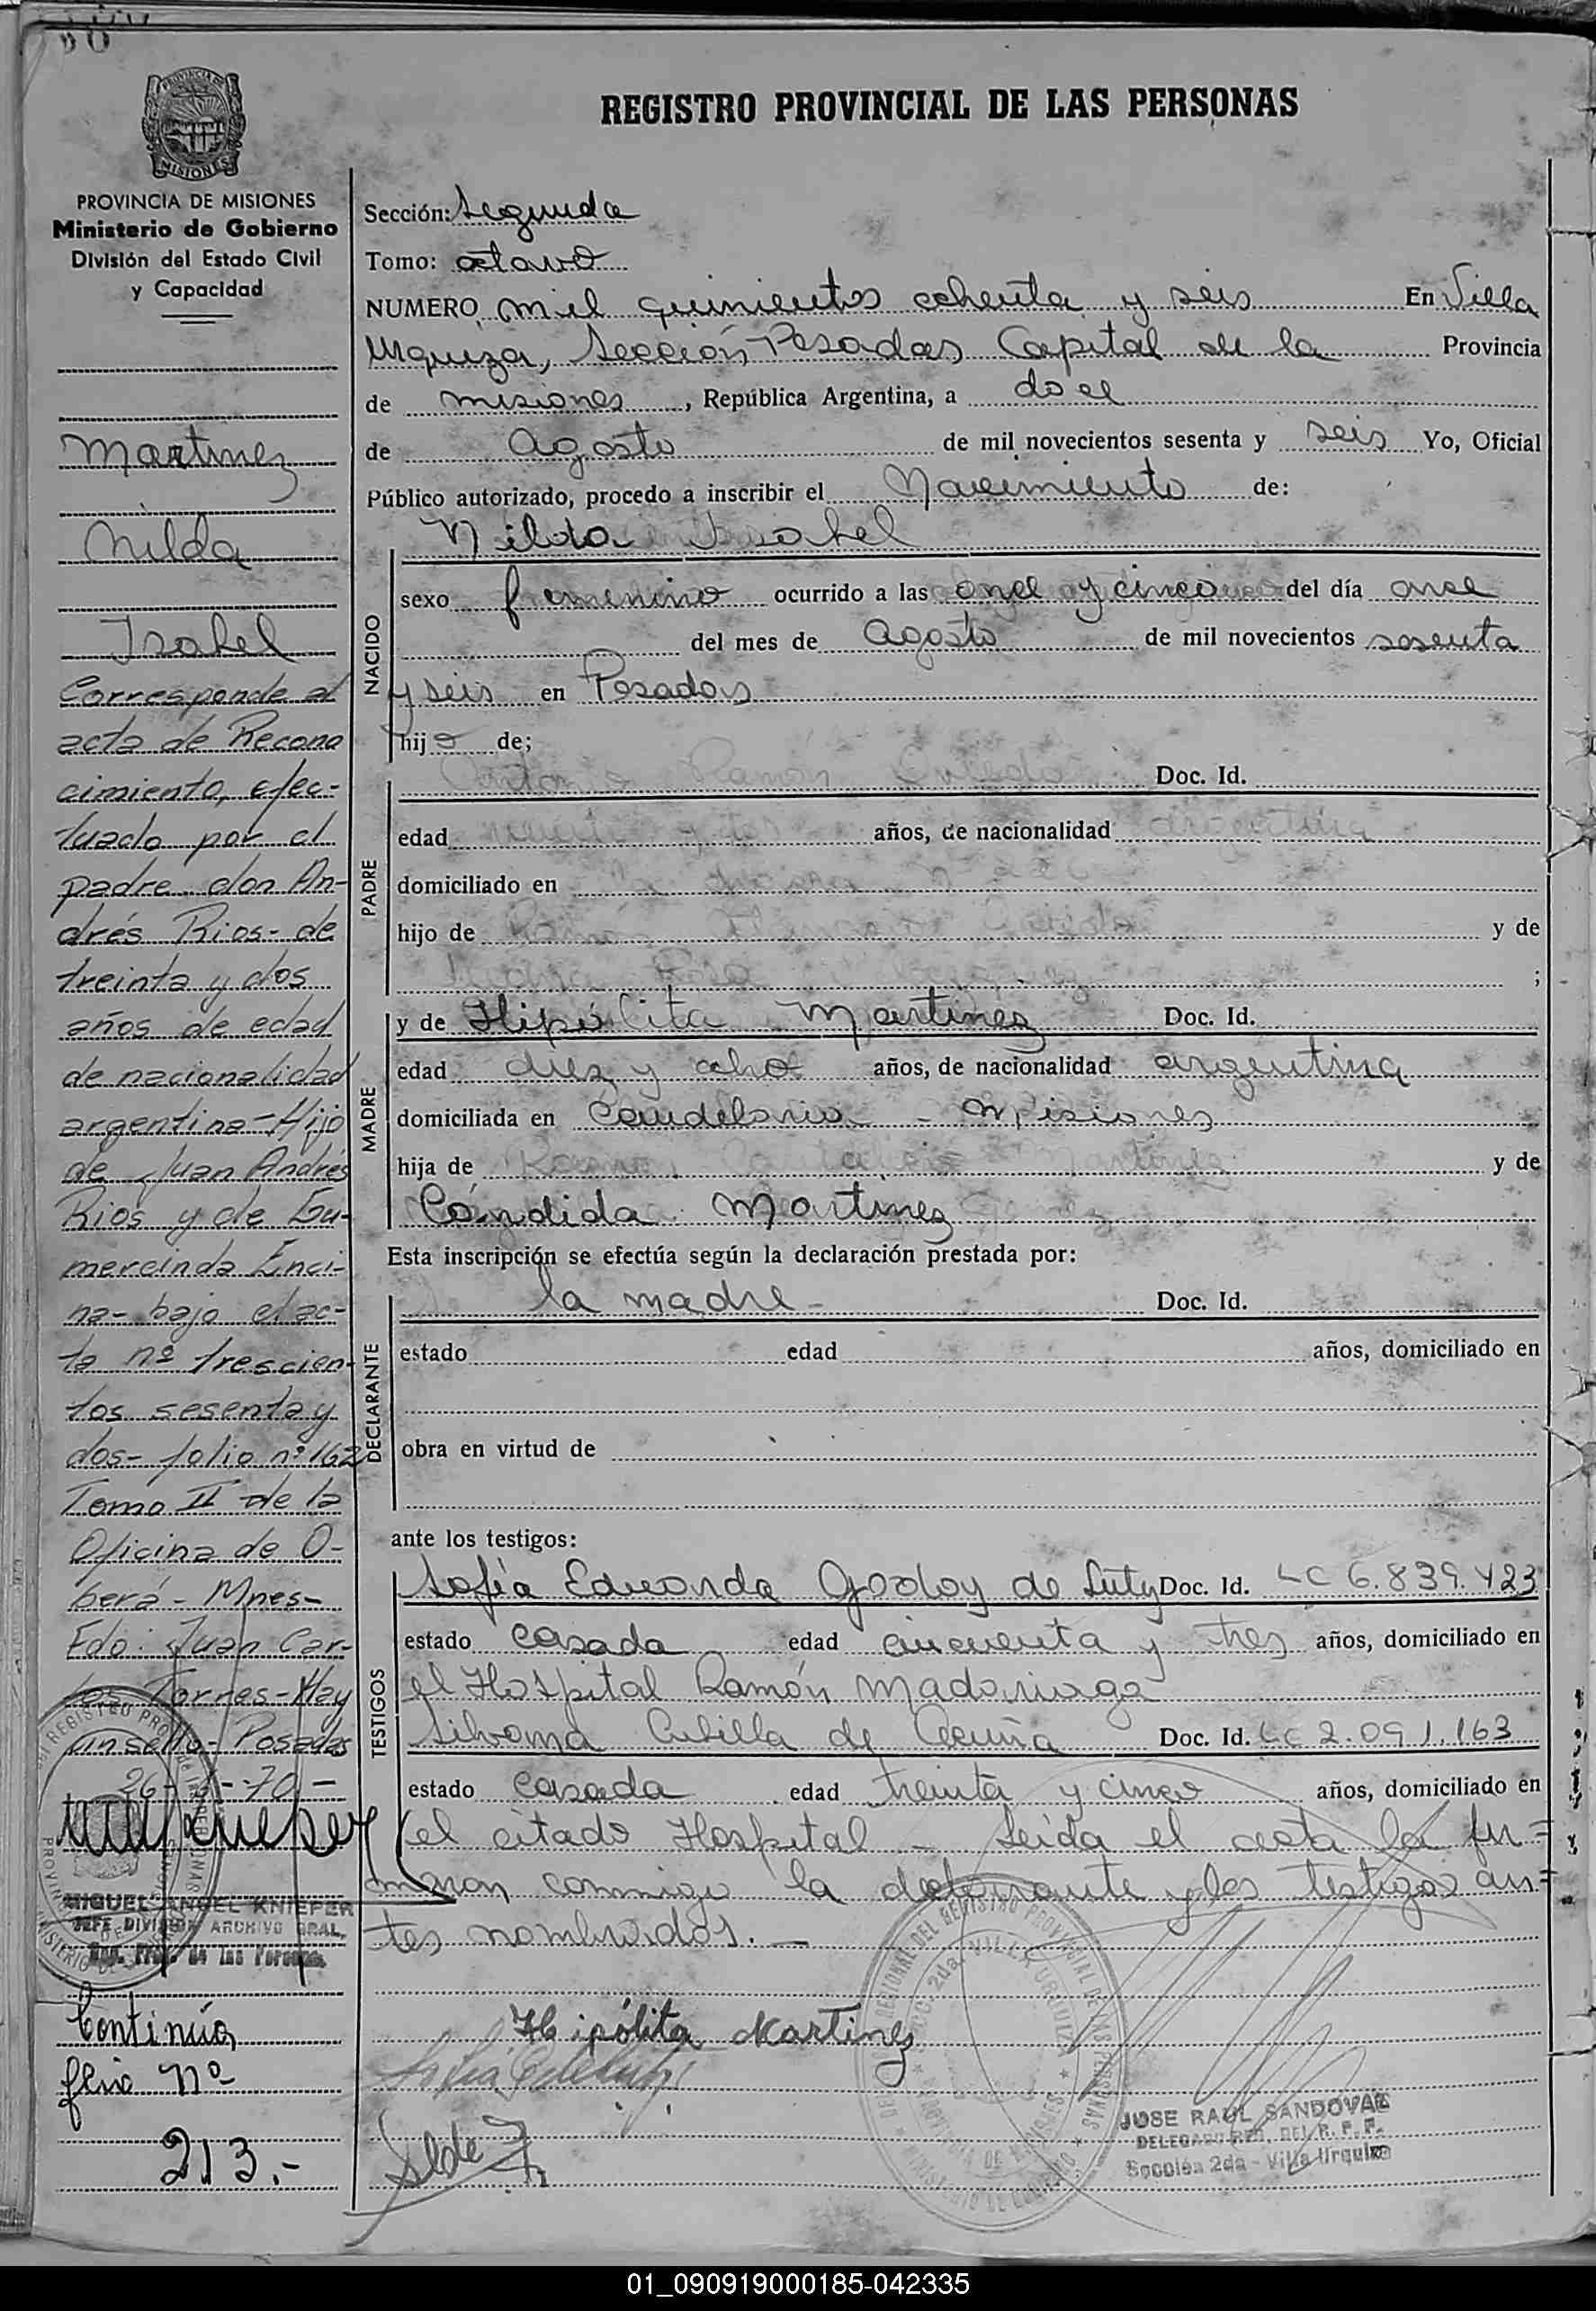 REGISTRO PROVINCIAL DE LAS PERSONAS
PROVINCIA DE MISIONES
Ministerio de Gobierno
División del Estado Civil
y Capacidad
Martinez
Nilda
Isabel
Corresponde al
acta de Recono
cimiento, efec-
tuado por el
padre don An-
drés Rios- de
treinta y dos
años de edad
de nacionalidad
argentina - Hijo
de Juan Andrés
Rios y de Gu-
mercinda Enci-
na- bajo el ac-
ta nº trescien-
tos sesenta y
dos- folio nº 162
Tomo II de la
Oficina de O-
berá - Mnes-
Fdo: Juan Car-
los Torres- Hay
un sello- Posadas
MIGUEL ANGEL KNIEPER
JEFE DIVISION ARCHIVO GRAL.
Continúa
folio Nº
213.-
Sección: Segunda
Tomo: octavo
NUMERO mil quinientos ochenta y seis En Villa
Urquiza, Sección Posadas Capital de la Provincia
de misiones, República Argentina, a doce
de Agosto de mil novecientos sesenta y seis Yo, Oficial
Público autorizado, procedo a inscribir el Nacimiento de:
Nilda Isabel
NACIDO
sexo femenino ocurrido a las once y cinco del día once
del mes de Agosto de mil novecientos sesenta
y seis en Posadas
hij de;
PADRE
Antonio Ramón Doc. Id.
edad años, de nacionalidad argentina
domiciliado en
hijo de Ramón y de
;
MADRE
y de Hipólita Martinez Doc. Id.
edad diez y ocho años, de nacionalidad argentina
domiciliada en Candelaria - Misiones
hija de Martinez y de
Cándida Martinez
Esta inscripción se efectúa según la declaración prestada por:
DECLARANTE
la madre - Doc. Id.
estado edad años, domiciliado en
obra en virtud de
ante los testigos:
TESTIGOS
Sofía Eduarda Godoy de Luty Doc. Id. LC 6.839.423
estado casada edad cincuenta y tres años, domiciliado en
el Hospital Ramón Madariaga
Silvana Cubilla de Acuña Doc. Id. LC 2.091.163
estado casada edad treinta y cinco años, domiciliado en
el citado Hospital - Leída el acta la fir=
maron conmigo la declarante y los testigos an=
tes nombrados. -
Hipólita Martinez
JOSE RAUL SANDOVAL
DELEGADO REG. DEL R. P. P.
Sección 2da - Villa Urquiza
01_090919000185-042335